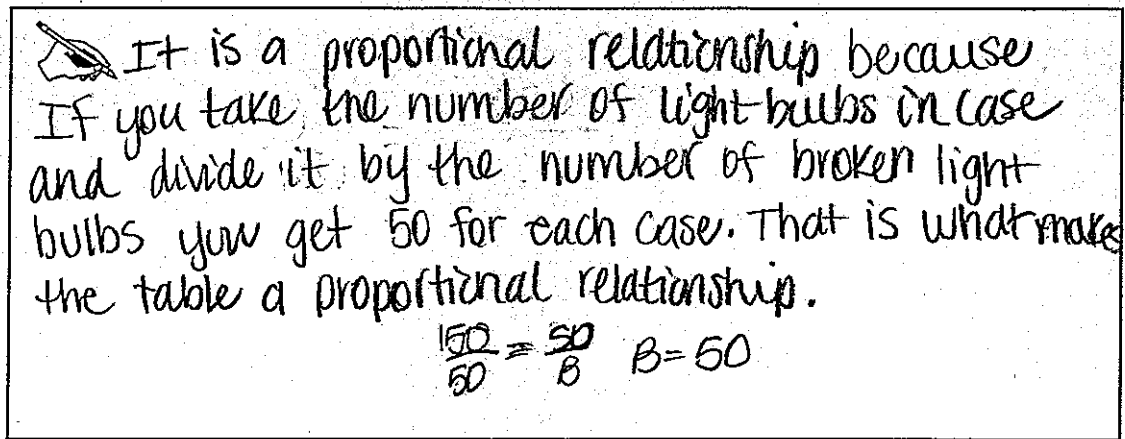 It is a proportional relationship because
If you take the number of light bulbs in case
and divide it by the number of broken light
bulbs you get 50 for each case. That is what makes
the table a proportional relationship.
150/50 = 50/B B=50